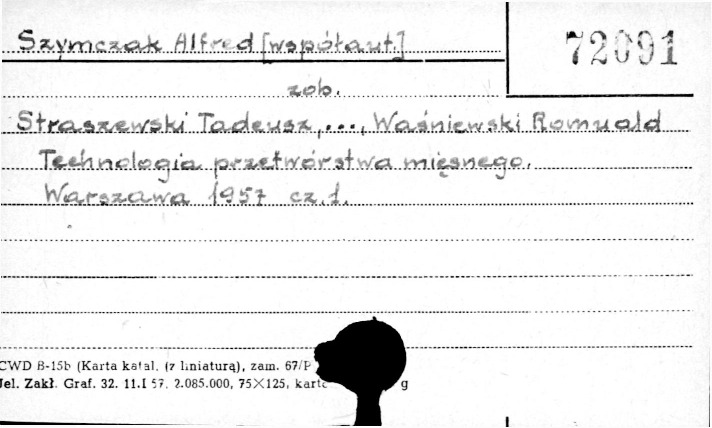 Szymczak Alfred [współaut.]
72091
zob.
Straszewski Tadeusz, ..., Waśniewski Romuald
Technologia przetwórstwa mięsnego.
Warszawa 1957 cz. 1.
CWD B-15b (Karta katal. (z liniaturą), zam. 67/P
Jel. Zakł. Graf. 32. 11.I 57. 2.085.000, 75×125, g